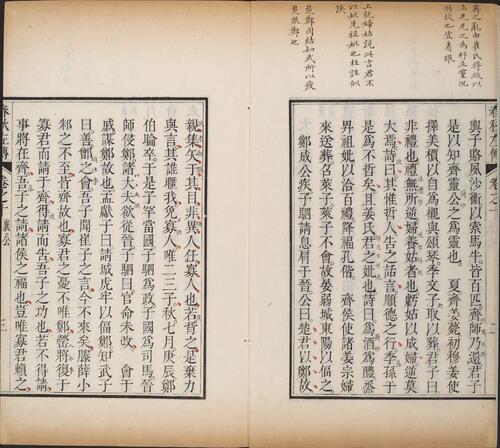 上說婦姑此言君不
以妣先祖妣也杜註似
誤
與子賂夙沙衛以索馬牛。皆百匹齊師乃還君子
是以知齊靈公之為靈也。 夏齊姜薨初穆姜使
擇美檟以自為櫬與頌琴季文子取以葬君子曰
非禮也禮無所逆婦養姑者也虧姑以成婦逆莫
大焉詩曰其惟哲人告之話言順德之行季孫于
是為不哲矣且姜氏君之妣也詩曰為酒為醴烝
畀祖妣以洽百禮降福孔偕 齊侯使諸姜宗婦
來送葬召萊子萊子不會故晏弱城東陽以偪之
鄭成公疾子駟請息肩于晉公曰楚君以鄭故
親集矢于其目非異人任寡人也若背之是棄力
與言其誰暱我免寡人唯二三子秋七月庚辰鄭
伯睔卒。于是子罕當國子駟為政子國為司馬晉
師侵鄭諸大夫欲從晉子駟曰官命未改。 會于
戚謀鄭故也孟獻子曰請城虎牢以偪鄭知武子
曰善鄫之會吾子聞崔子之言今不來矣滕薛小
邾之不至皆齊故也寡君之憂不唯鄭罃將復于
寡君而請于齊得請而告吾子之功也若不得請
事將在齊吾子之請諸侯之福也豈唯寡君賴之
春秋左傳
卷之
襄公
三